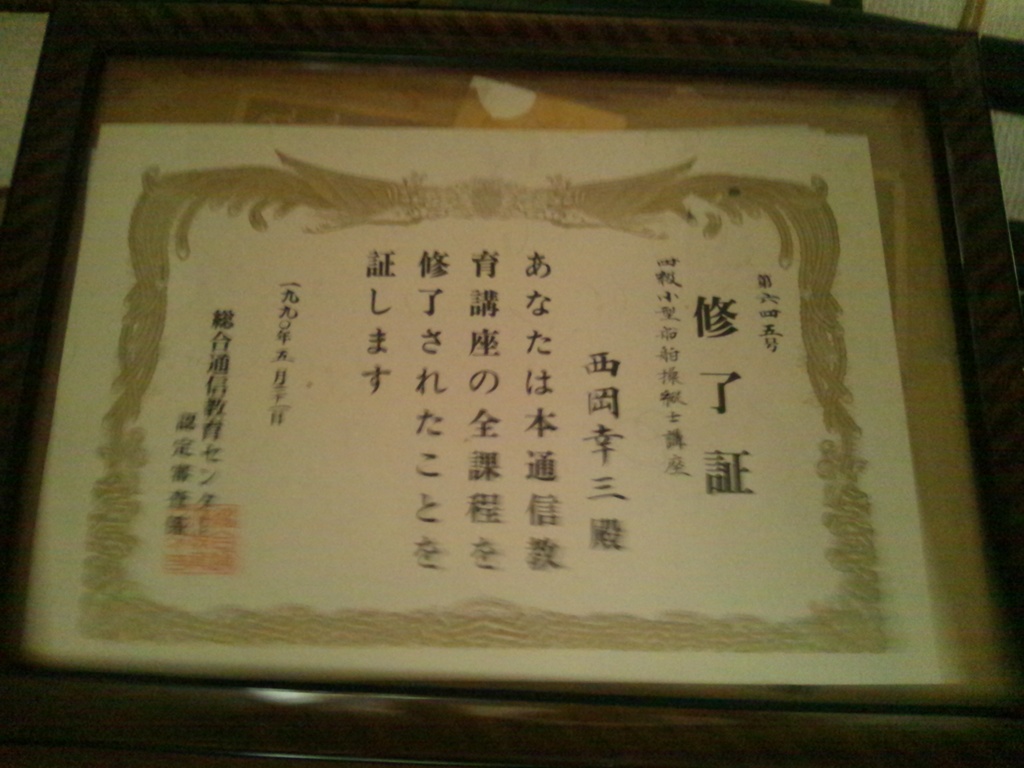 第六四五号
修了証
四級小型船舶操縦士講座
西岡幸三殿
あなたは本通信教
育講座の全課程を
修了されたことを
証します
一九九〇年五月三十一日
総合通信教育センター
認定審査